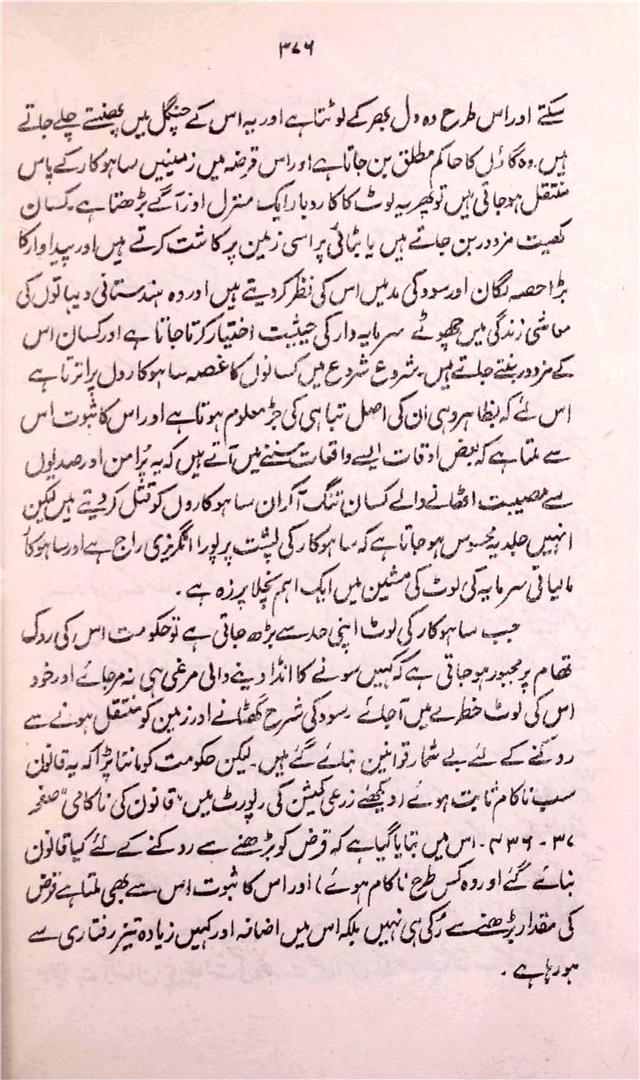 ۳۷۶
سکتے اور اس طرح وہ دل بھر کے لوٹتا ہے اور یہ اس کے چنگل میں پھنستے چلے جاتے
ہیں۔ وہ گاؤں کا حاکم مطلق بن جاتا ہے اور اس قرضہ میں زمینیں ساہوکار کے پاس
منتقل ہو جاتی ہیں تو پھر یہ لوٹ کا کاروبار ایک منزل اور آگے بڑھتا ہے۔ کسان
کھیت مزدور بن جاتے ہیں یا بٹائی پر اسی زمین پر کاشت کرتے ہیں اور پیداوار کا
بڑا حصہ لگان اور سود کی مد میں اس کی نظر کر دیتے ہیں اور وہ ہندستانی دیہاتوں کی
معاشی زندگی میں چھوٹے سرمایہ دار کی حیثیت اختیار کرتا جاتا ہے اور کسان اس
کے مزدور بنتے جاتے ہیں۔ شروع شروع میں کسانوں کا غصہ ساہوکار دل پر اترتا ہے
اس لئے کہ بظاہر وہی ان کی اصل تباہی کی جڑ معلوم ہوتا ہے اور اس کا ثبوت اس
سے ملتا ہے کہ بعض اوقات ایسے واقعات سننے میں آتے ہیں کہ یہ پُرامن اور صدیوں
سے مصیبت اٹھانے والے کسان تنگ آکر ان ساہوکاروں کو قتل کر دیتے ہیں لیکن
انہیں جلد یہ محسوس ہو جاتا ہے کہ ساہوکار کی پشت پر پورا انگریزی راج ہے اور ساہوکار
مالیاتی سرمایہ کی لوٹ کی مشین میں ایک اہم نچلا پرزہ ہے۔
جب ساہوکار کی لوٹ اپنی حد سے بڑھ جاتی ہے تو حکومت اس کی روک
تھام پر مجبور ہو جاتی ہے کہ کہیں سونے کا انڈا دینے والی مرغی ہی نہ مر جائے اور خود
اس کی لوٹ خطرے میں آ جائے۔ سود کی شرح گھٹانے اور زمین کو منتقل ہونے سے
روکنے کے لئے بے شمار قوانین بنائے گئے ہیں۔ لیکن حکومت کو ماننا پڑا کہ یہ قانون
سب ناکام ثابت ہوئے (دیکھئے زرعی کمیشن کی رپورٹ میں "قانون کی ناکامی" صفحہ
۳۷-۴۳۶۔ اس میں بتایا گیا ہے کہ قرض کو بڑھنے سے روکنے کے لئے کیا قانون
بنائے گئے اور وہ کس طرح ناکام ہوئے) اور اس کا ثبوت اس سے بھی ملتا ہے قرض
کی مقدار بڑھنے سے رُکی ہی نہیں بلکہ اس میں اضافہ اور کہیں زیادہ تیز رفتاری سے
ہو رہا ہے۔